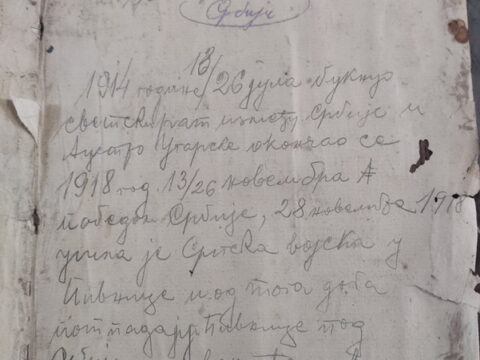 Србије
1914 године 13/26 јула букнуо
светски рат између Србије и
Аустро Угарске окончао се
1918 год. 13/26 новембра А
победом Србије, 28 новембра 1918
ушла је Српска војска у
Пивнице и од тога доба
потпадају Пивнице под